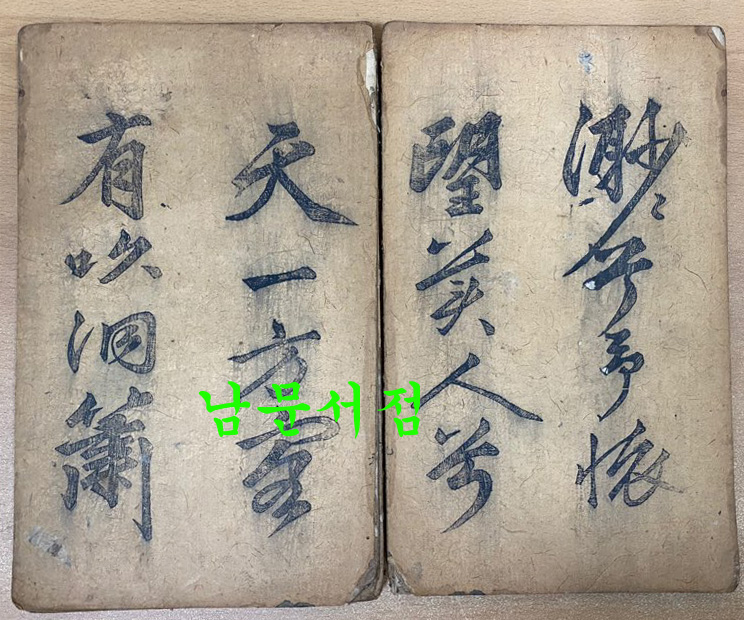 渺〻兮予懷
望美人兮
天一方客
有吹洞簫
남문서점